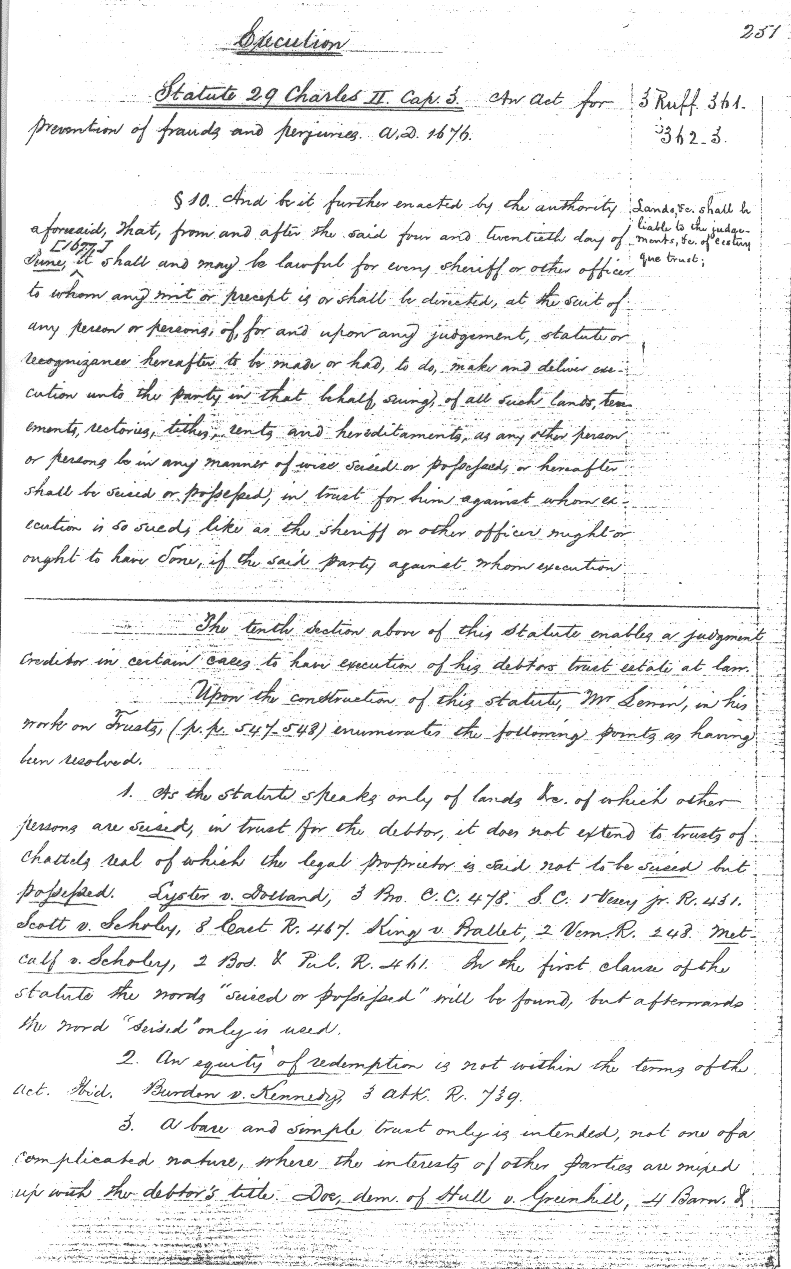 251
Execution
Statute 29 Charles II. Cap. 3. An Act for
prevention of frauds and perjuries. A.D. 1676.
3 Ruff. 361.
362-3.
§ 10. And be it further enacted by the authority
aforesaid, That, from and after the said four and twentieth day of
[1677]
June, ^ it shall and may be lawful for every sheriff or other officer
to whom any writ or precept is or shall be directed, at the suit of
any person or persons, of, for and upon any judgement, statute or
recognizance hereafter to be made or had, to do, make and deliver exe-
cution unto the party in that behalf suing, of all such lands, ten-
ements, rectories, tithes, rents and hereditaments, as any other person
or persons be in any manner of wise seised or possessed, or hereafter
shall be seised or possessed, in trust for him against whom ex-
ecution is so sued, like as the sheriff or other officer might or
ought to have done, if the said party against whom execution
Lands, &c. shall be
liable to the judge-
ments, &c. of cestuy
que trust;
The tenth section above of this Statute enables a judgment
creditor in certain cases to have execution of his debtors trust estate at law.
Upon the construction of this statute, Mr Lewin, in his
work on Trusts, (p.p. 547-548) enumerates the following points as having
been resolved.
1. As the statute speaks only of lands &c. of which other
persons are seised, in trust for the debtor, it does not extend to trusts of
chattels real of which the legal proprietor is said not to be seised but
possessed. Lyster v. Dolland, 3 Bro. C.C. 478. S.C. 1 Vesey jr. R. 431.
Scott v. Scholey, 8 East R. 467. King v. Ballet, 2 Vern R. 248. Met-
calf v. Scholey, 2 Bos. & Pul. R. 461. In the first clause of the
statute the words "seised or possessed" will be found, but afterwards
the word "seised" only is used.
2. An equity of redemption is not within the terms of the
act. Ibid. Burdon v. Kennedy, 3 Atk. R. 739.
3. A bare and simple trust only is intended, not one of a
complicated nature, where the interests of other parties are mixed
up with the debtor's title. Doe, dem. of Hull v. Greenhill, 4 Barn. &